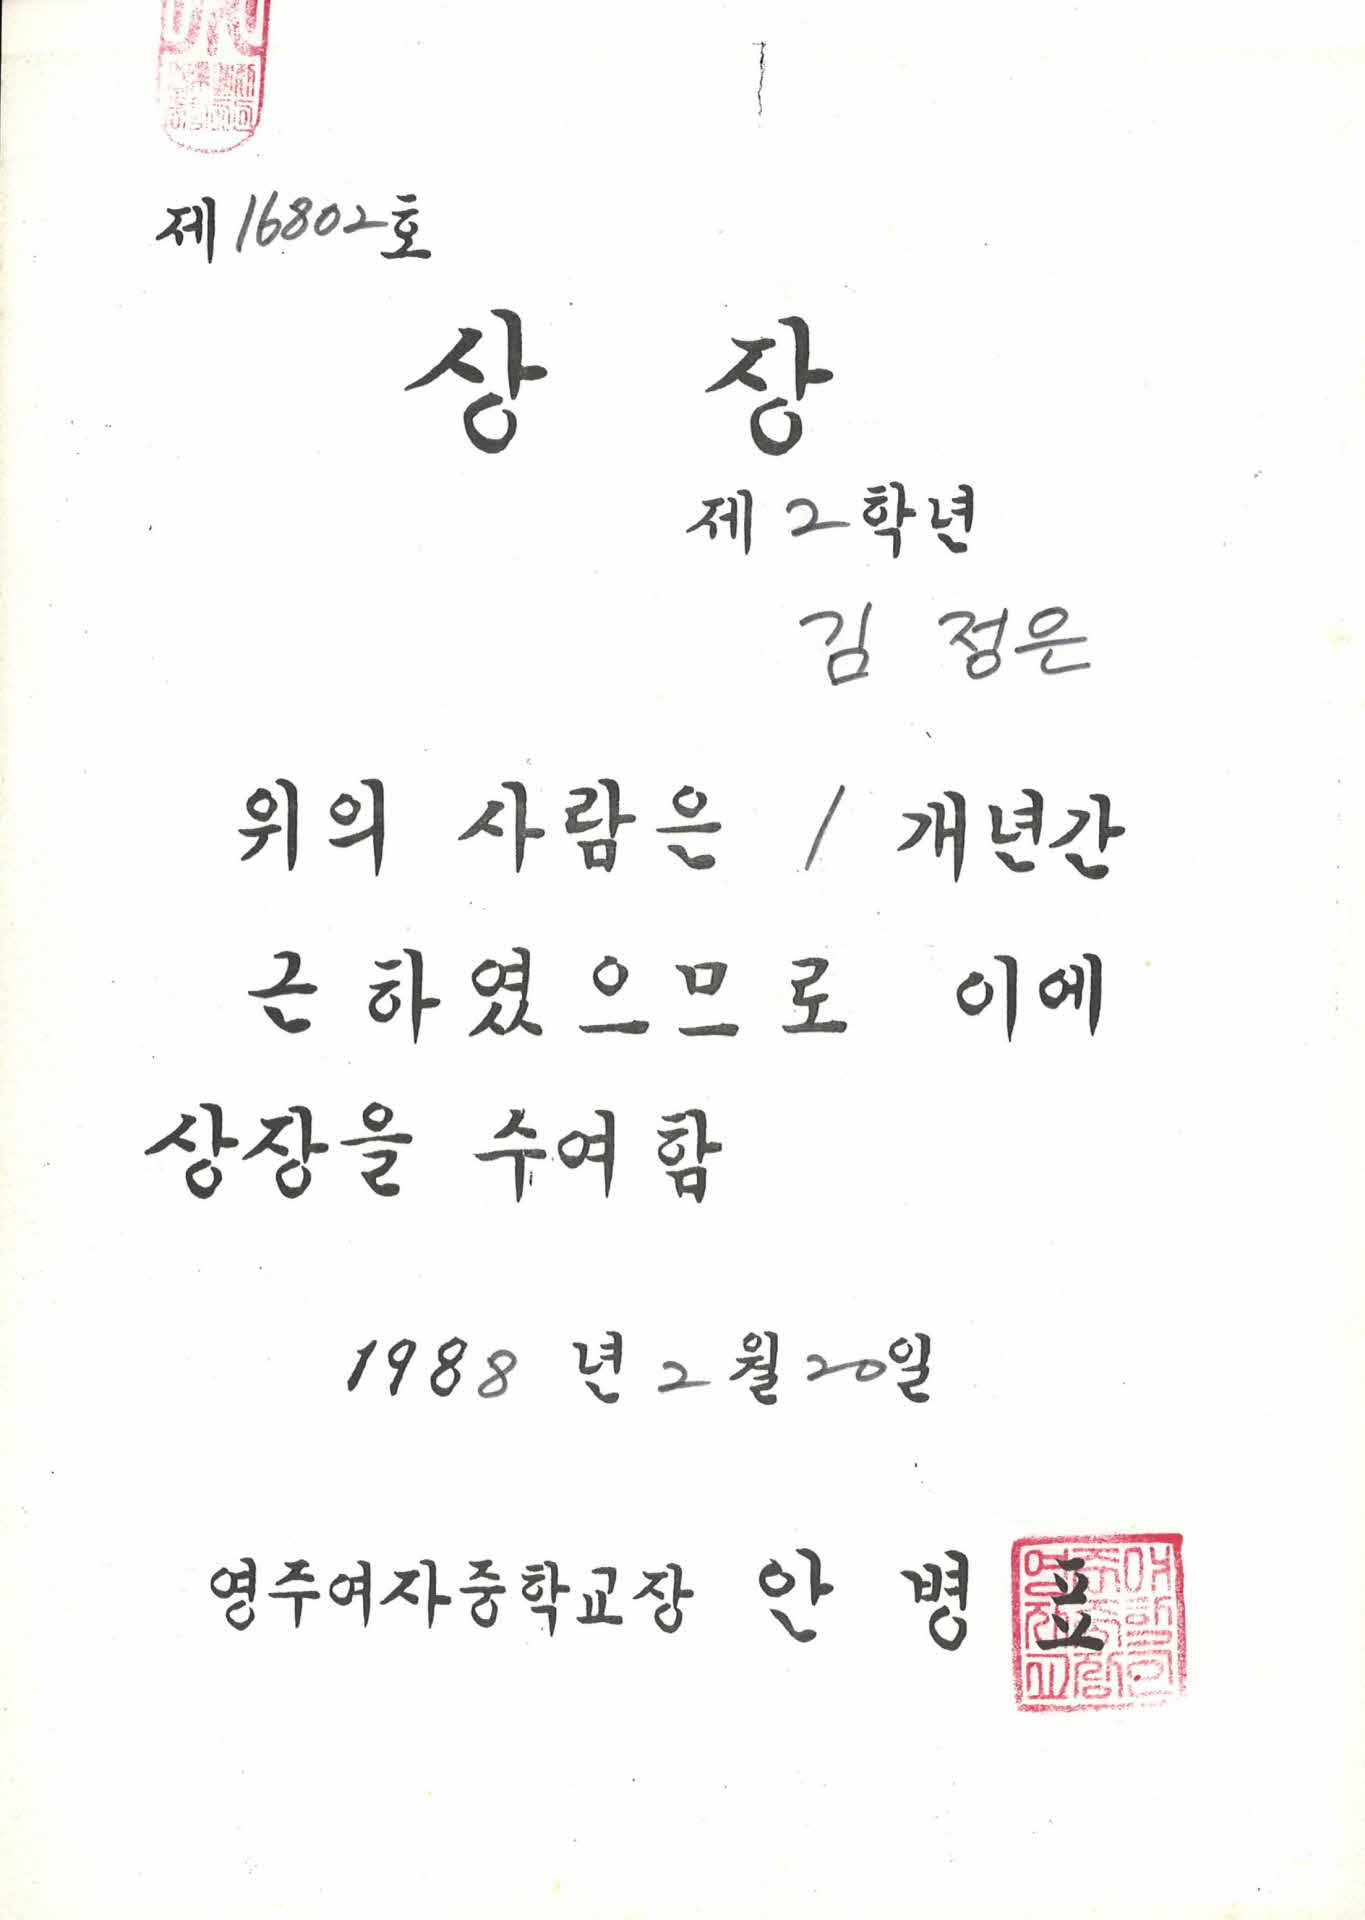 제 16802 호
상 장
제 2 학년
김 정은
위의 사람은 1 개년간
근하였으므로 이에
상장을 수여함
1988 년 2 월 20 일
영주여자중학교장 안 병 표